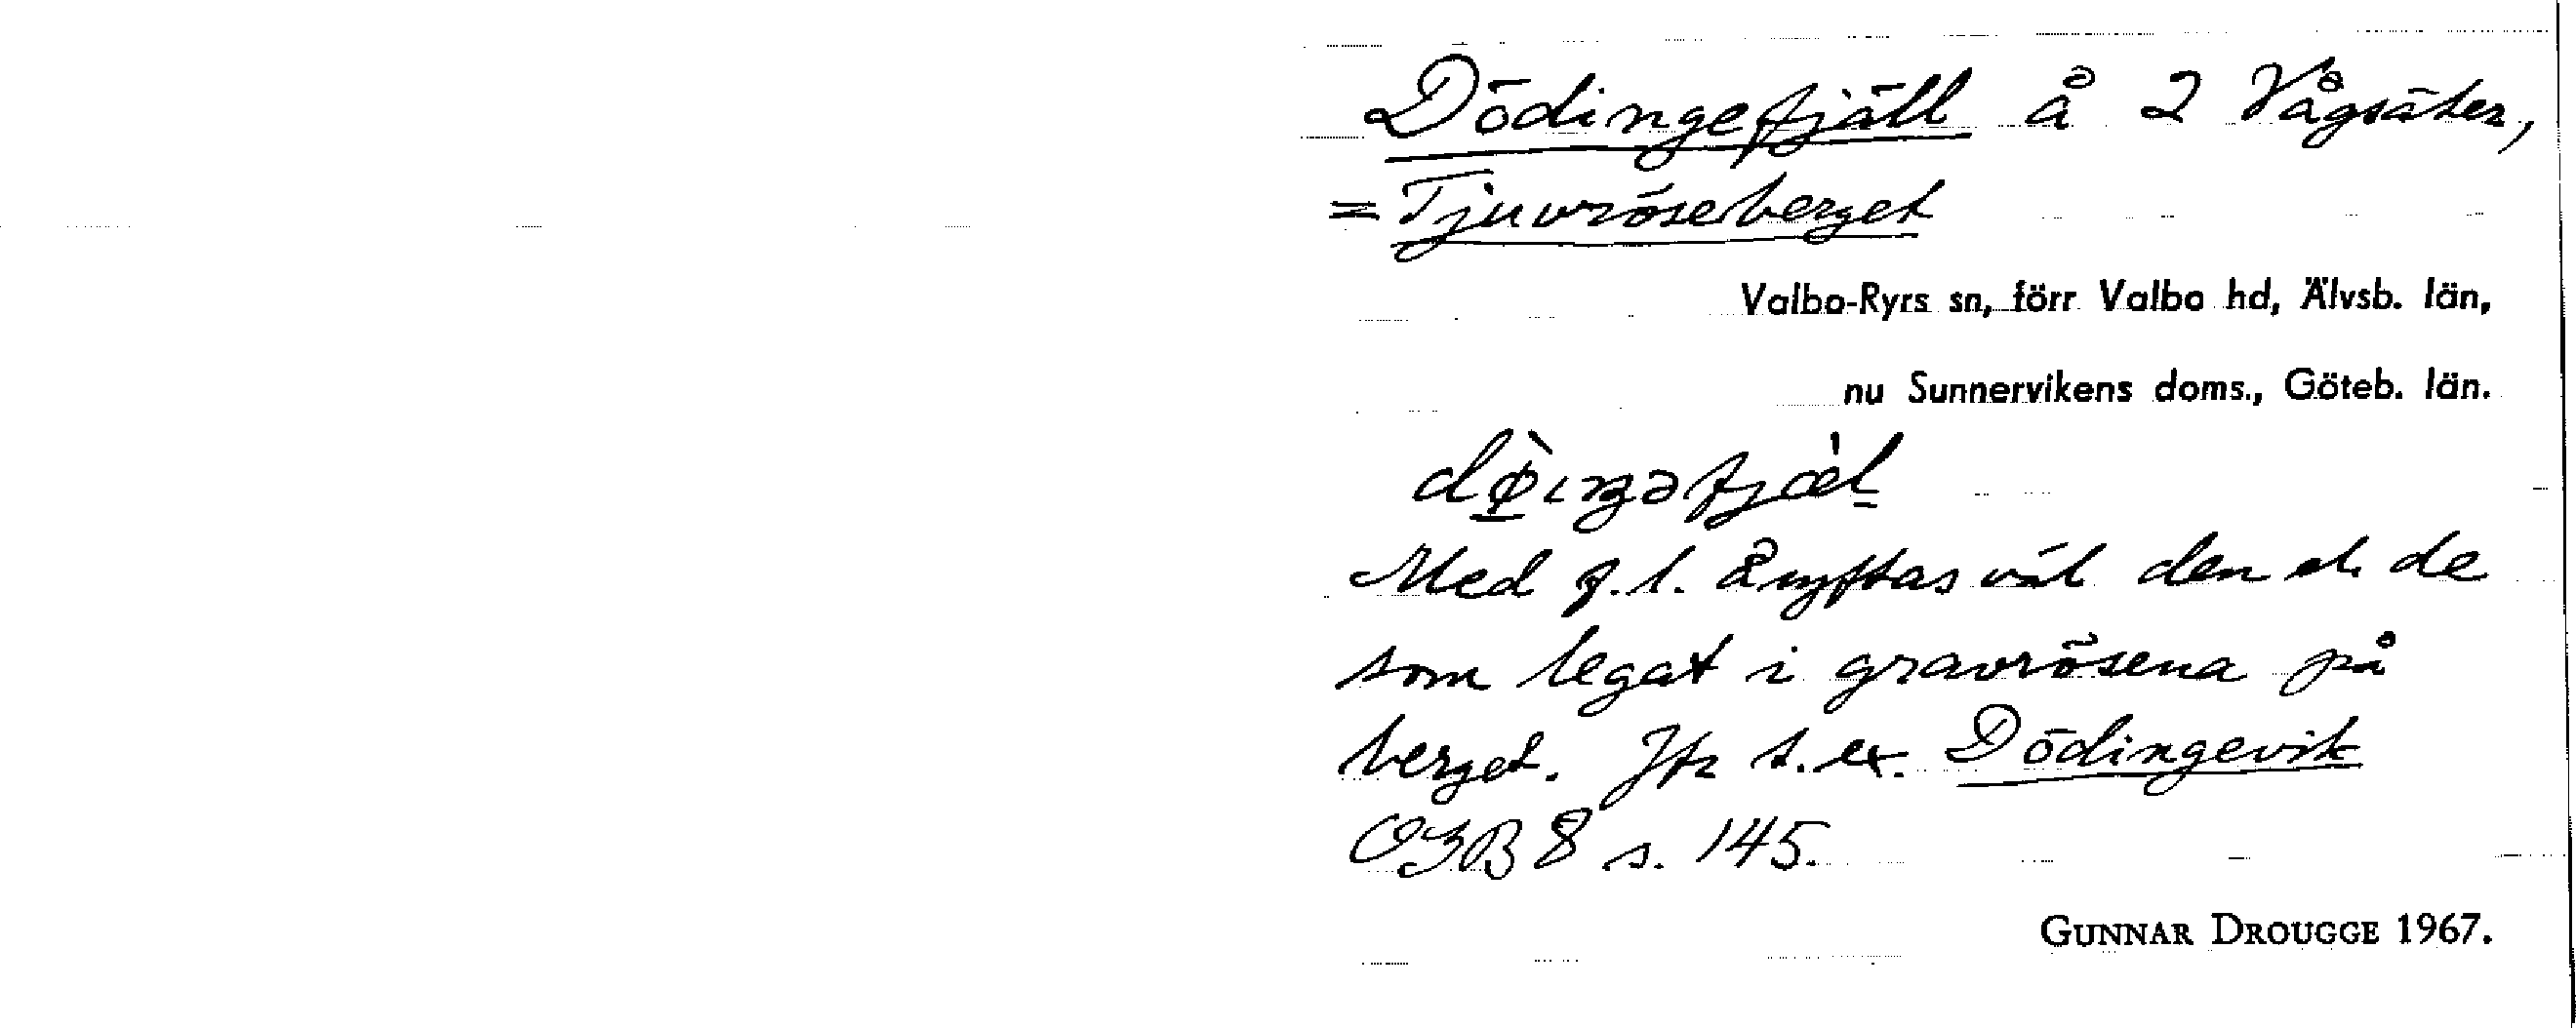 Dödingefjäll å 2 Vågsäter,
= Tjuvröseberget
Valbo-Ryrs sn, förr Valbo hd, Älvsb. län,
nu Sunnervikens doms., Göteb. län.
Med f.l. åsyftas väl den el. de
som legat i gravrösena på
berget. Jfr t.ex. Dödingevik
OGB 8 s. 145.
GUNNAR DROUGGE 1967.